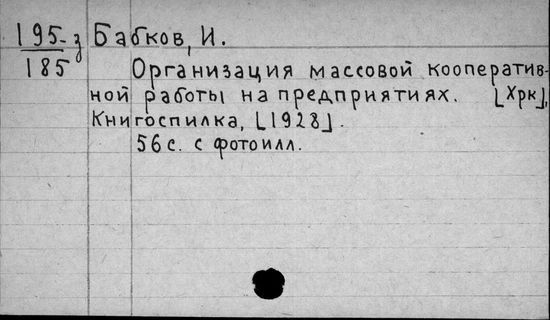 195-з Бабков, И.
185
Организация массовой кооператив-
ной работы на предприятиях. [Хрк],
Книгоспилка, [1928].
56 с. с фотоилл.